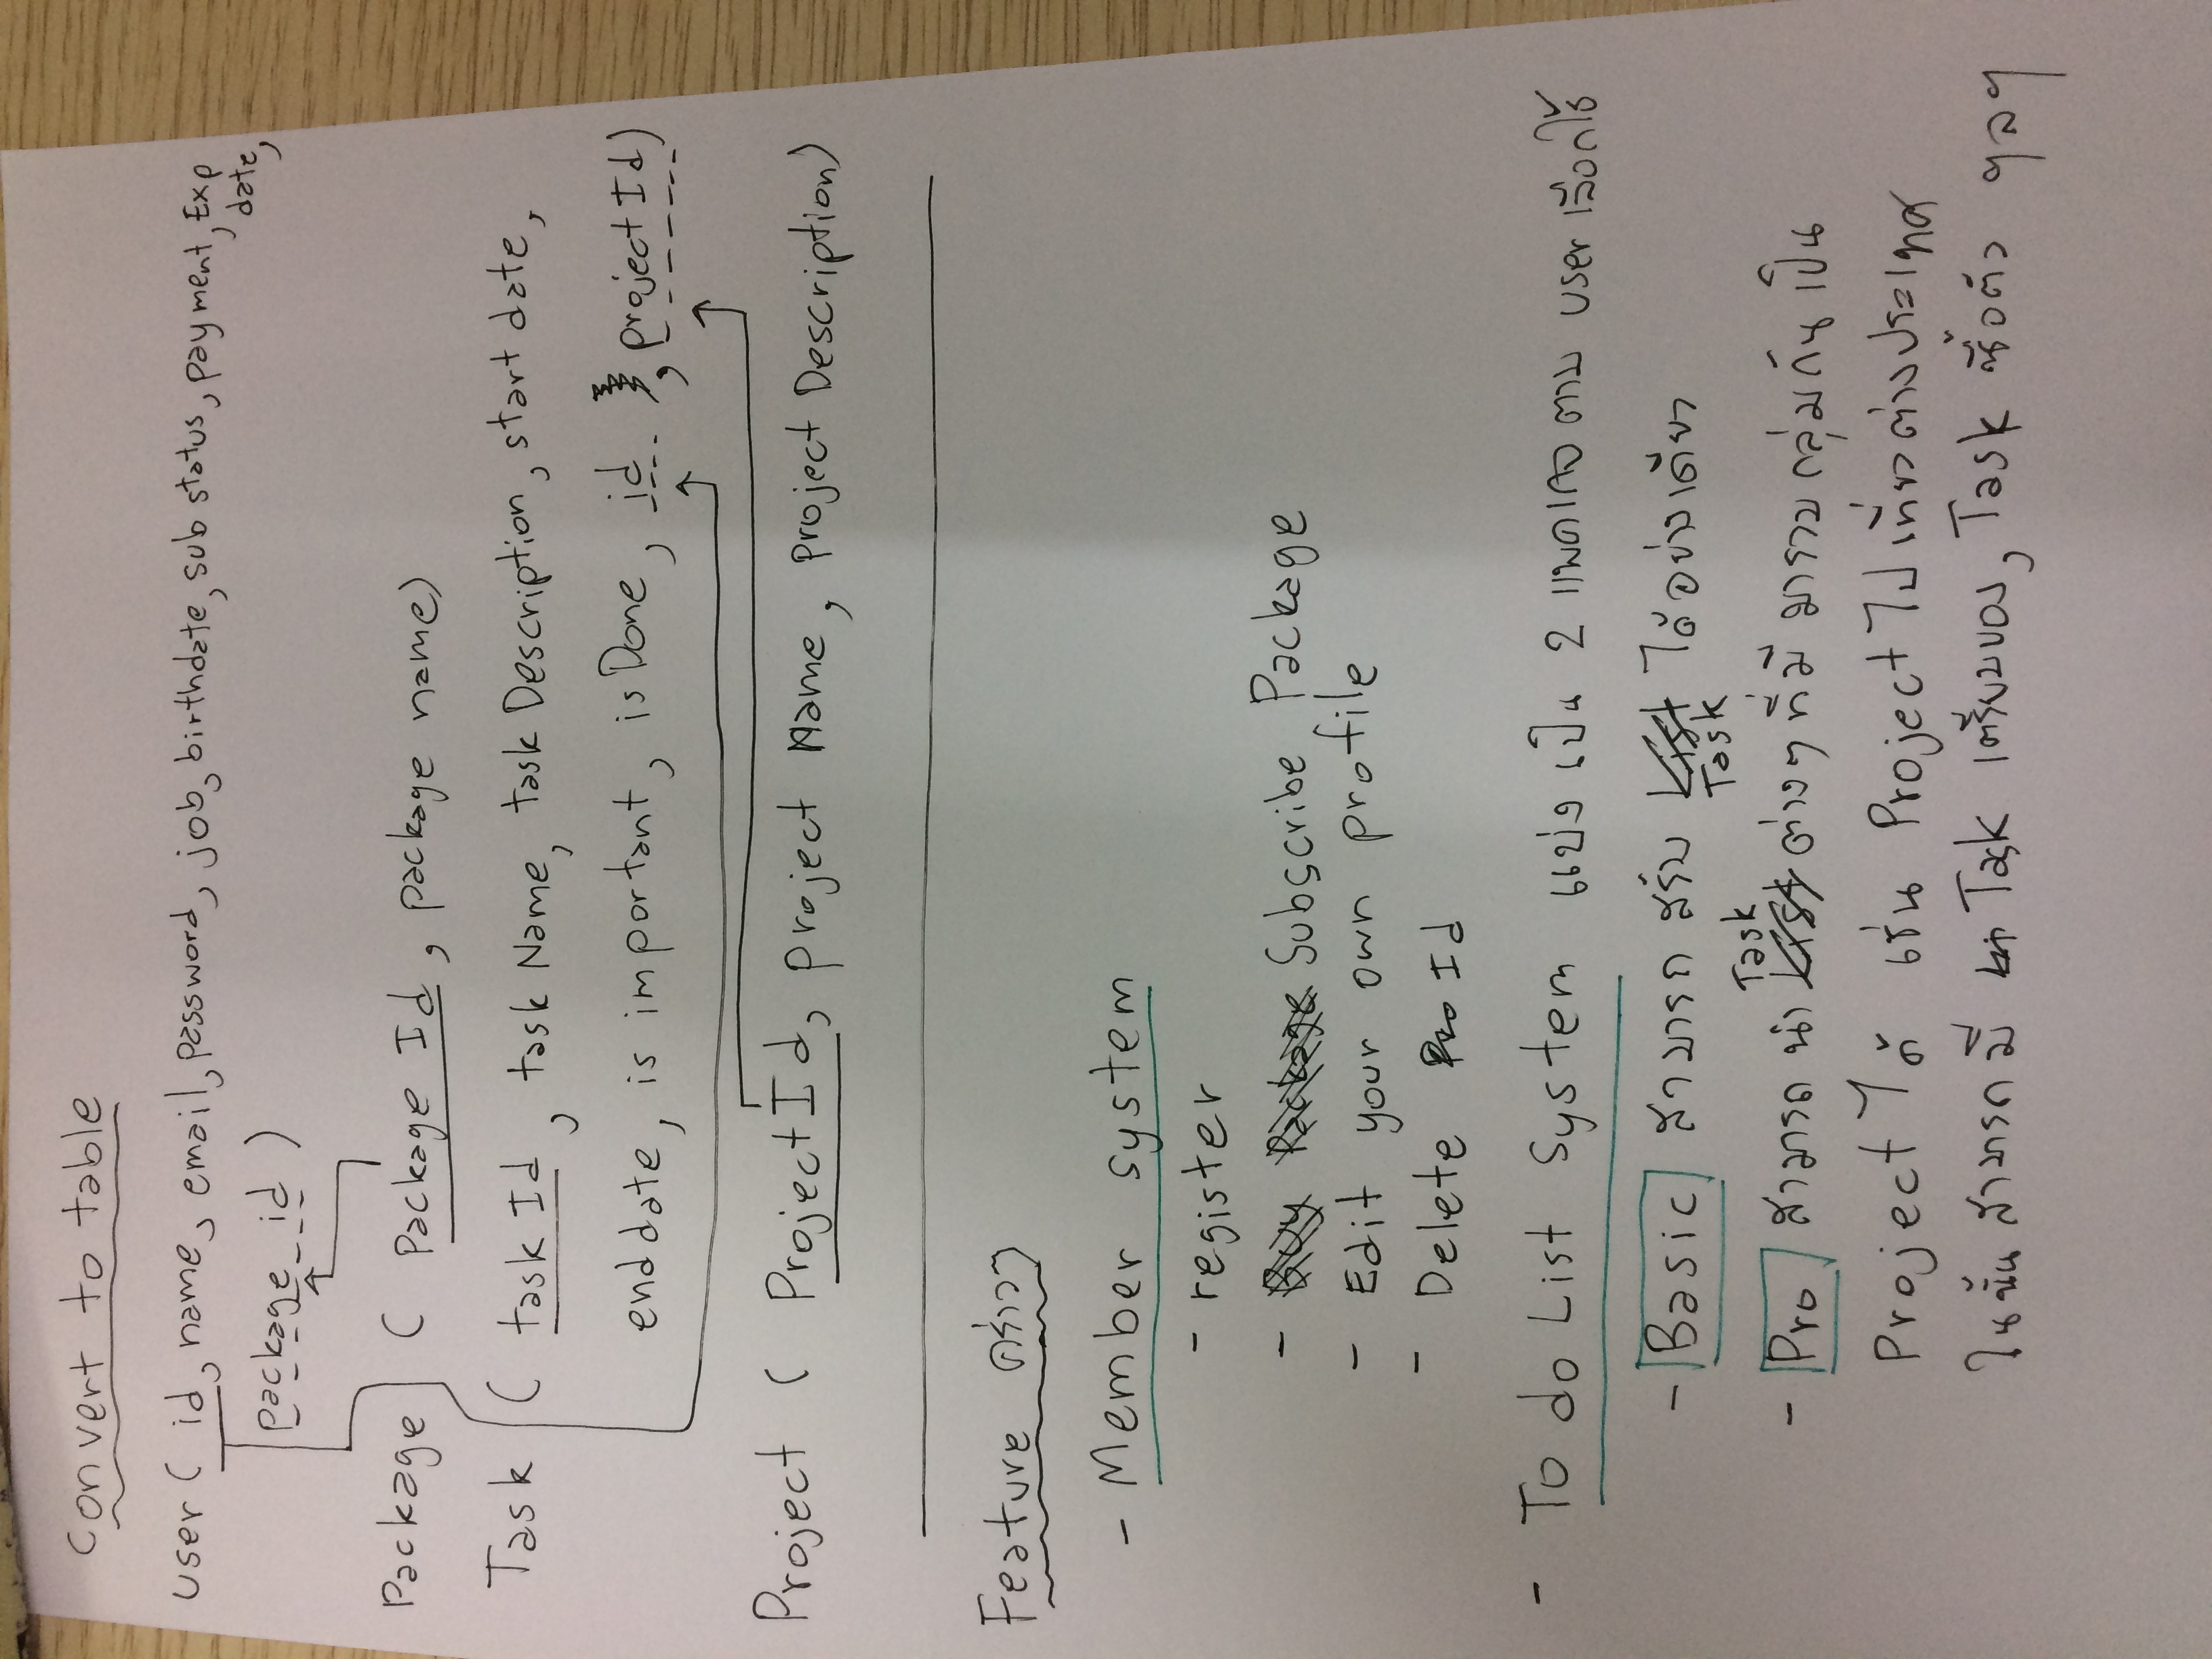 Convert to table
user ( id, name, email, password, job, birthdate, sub status, payment, Exp date,
package id )
Package ( Package Id, package name)
Task ( task Id, task Name, task Description, start date,
end date, is important, is Done, id , project Id)
Project ( Project Id, project Name, project Description)
Feature คร่าวๆ
- Member system
- register
- Buy Package Subscribe Package
- Edit your own profile
- Delete Pro Id
- To do List System แบ่งเป็น 2 แพคเกจ ตาม user เลือกใช้
- Basic สามารถ สร้าง List Task ได้อย่างเดียว
- Pro สามารถ นำ List Task ต่างๆ ที่มี มารวมกลุ่มกัน เป็น
Project ได้ เช่น Project ไปเที่ยวต่างประเทศ
ในนั้น สามารถ มี Task เตรียมของ, Task ซื้อตั๋ว ฯลฯ